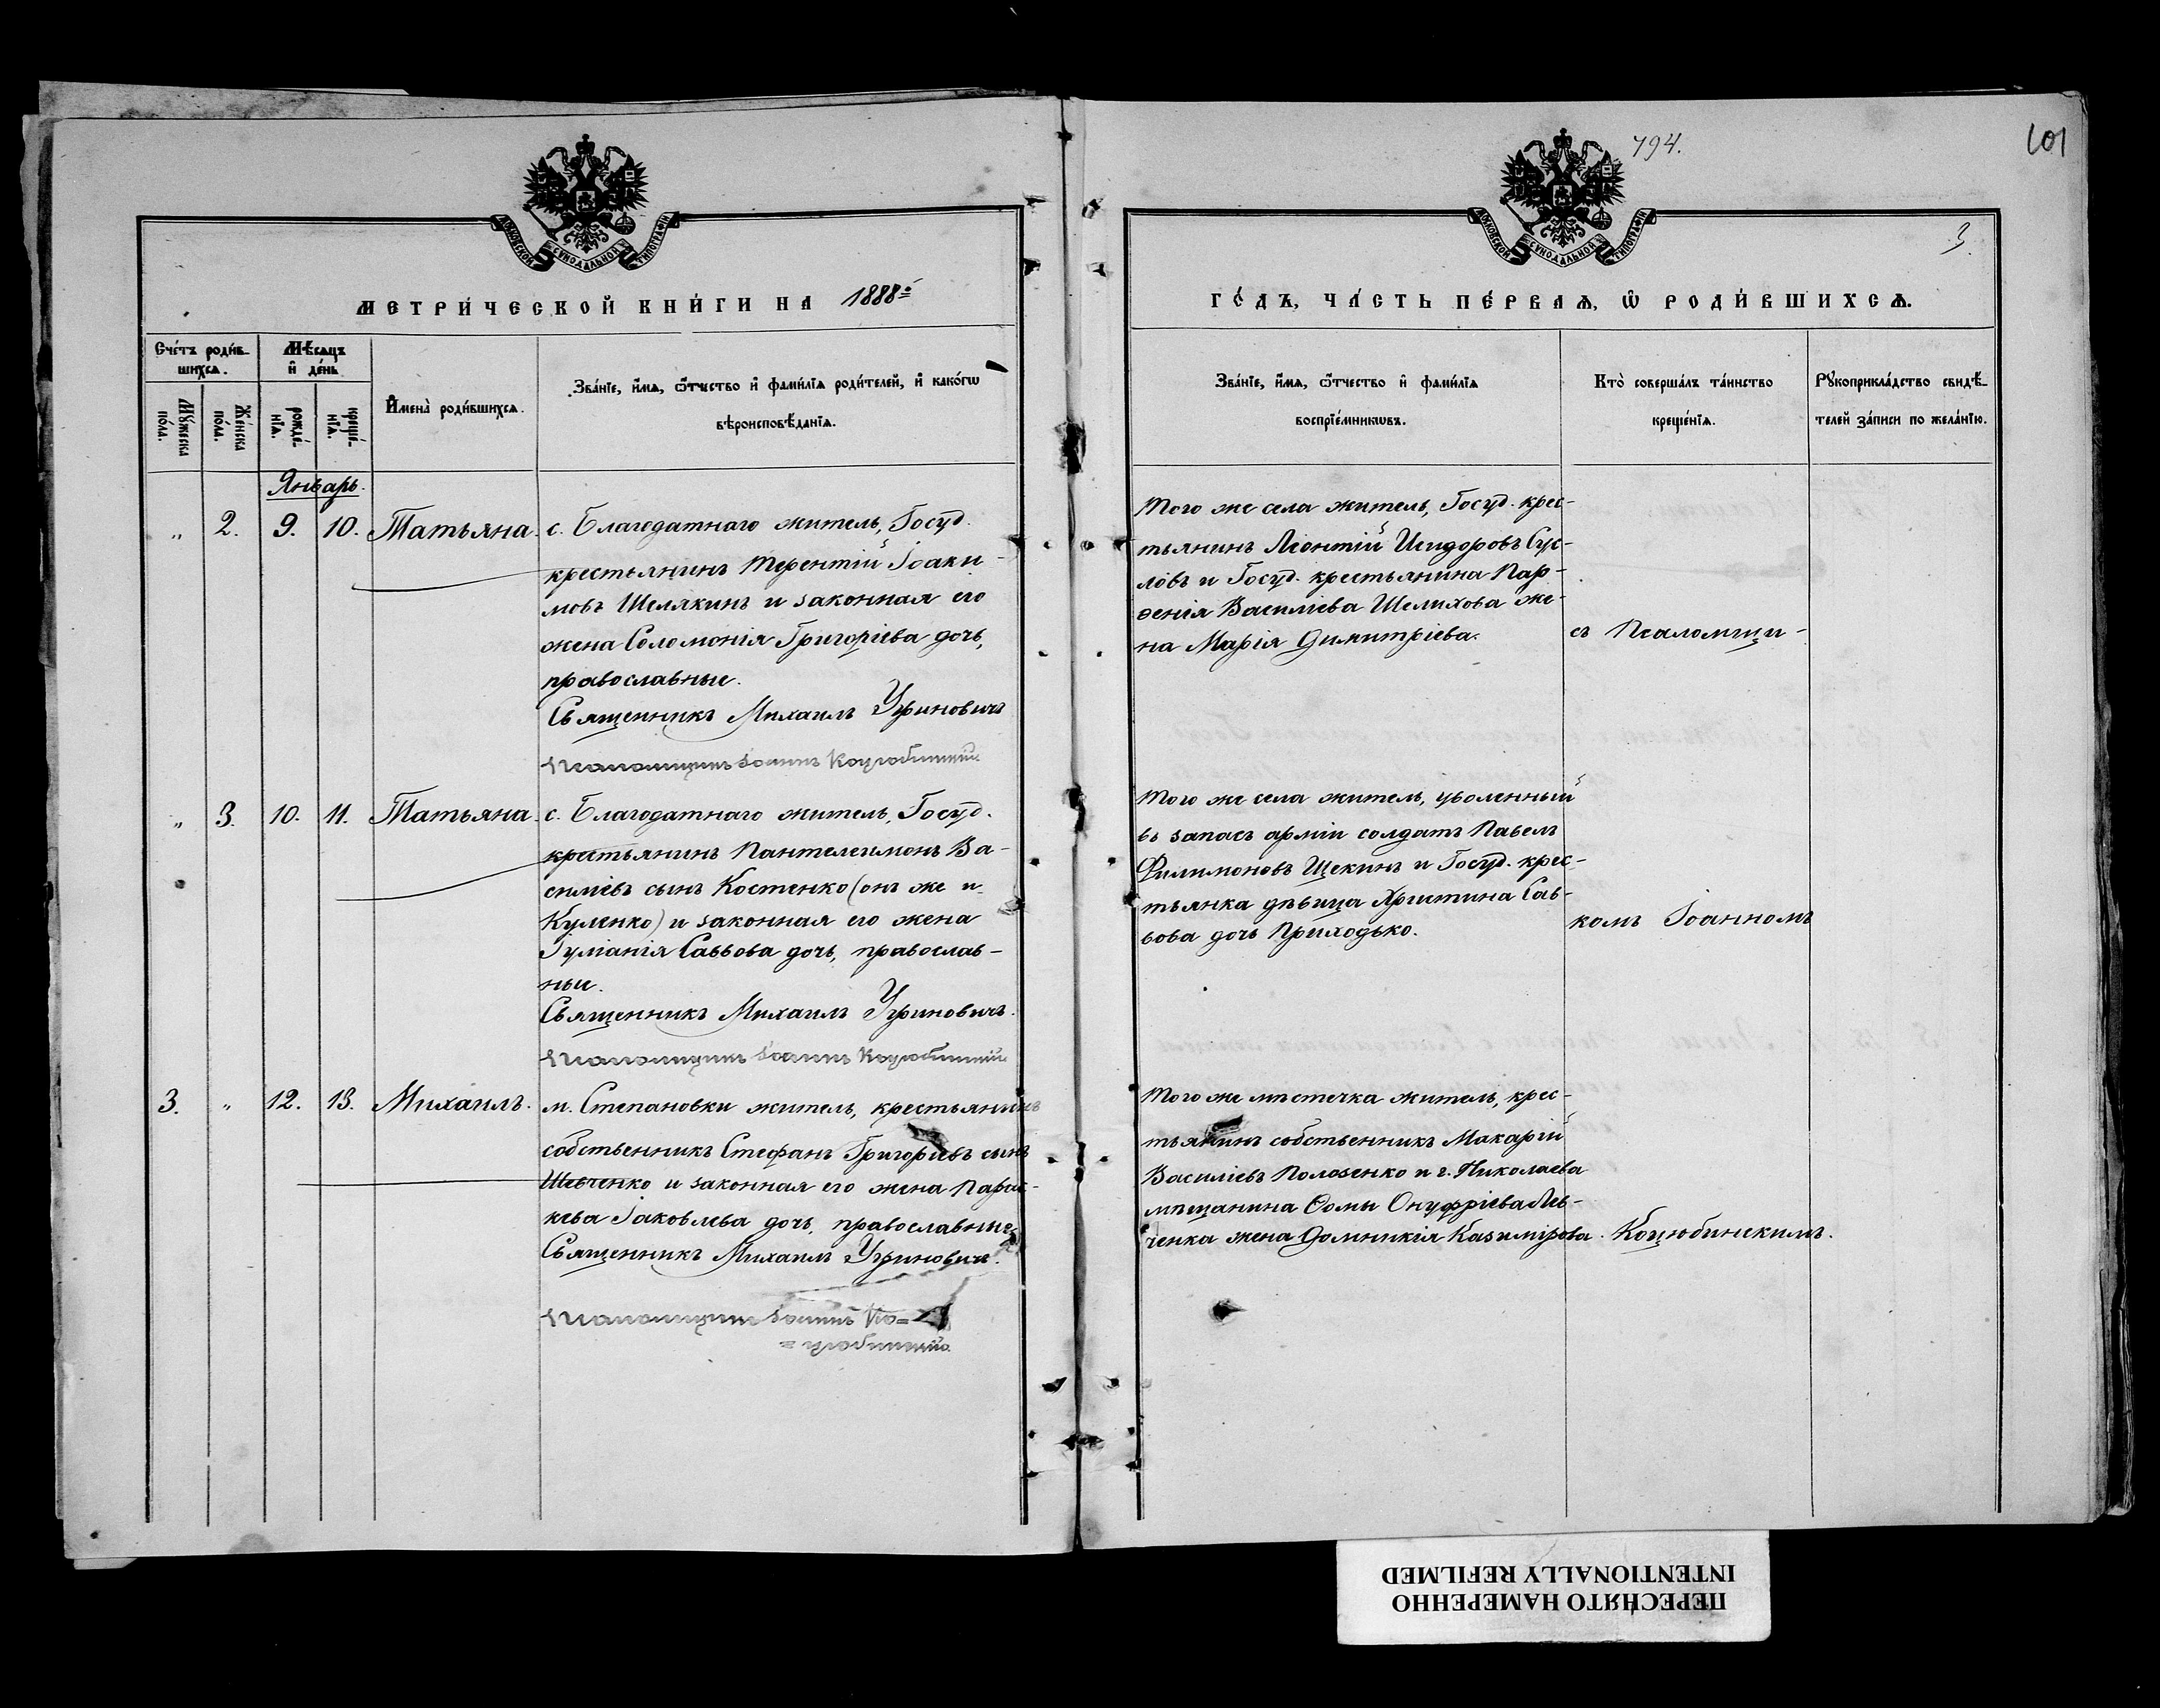 794.
101
3.
МОСКОВСКОЙ СѴНОДАЛЬНОЙ ТИПОГРАФІИ
МОСКОВСКОЙ СѴНОДАЛЬНОЙ ТИПОГРАФІИ
МЕТРИ́ЧЕСКОЙ КНИ́ГИ НА 1888й
ГО́ДЪ, ЧА́СТЬ ПЕ́РВАѦ, Ѡ РОДИ́ВШИХСѦ.
Сче́тъ роди́в-
шихсѧ.
Мѣ́сѧцъ
и҆ де́нь
Мꙋ́жеска
по́ла.
Же́нска
по́ла.
рожде́-
нїѧ.
креще́-
нїѧ.
И҆мена̀ роди́вшихсѧ.
Зва́нїе, и҆́мѧ, ѻ҆́тчество и҆ фами́лїѧ роди́телей, и҆ како́гѡ
вѣроисповѣ́данїѧ.
Зва́нїе, и҆́мѧ, ѻ҆́тчество и҆ фами́лїѧ
воспрїе́мникѡвъ.
Кто̀ соверша́лъ та́инство
креще́нїѧ.
Рꙋкоприкла́дство свидѣ́-
телей за́писи по жела́нїю.
Январь.
„ 2. 9. 10. Татьяна. с. Благодатнаго житель, Госуд.
крестьянинъ Терентій Іоаки-
мовъ Шелякинъ и законная его
жена Соломонія Григоріева дочь,
православные.
Священникъ Михаилъ Угриновичъ
Псаломщикъ Іоаннъ Коцюбинскій
Того же села житель, Госуд. крес-
тьянинъ Леонтій Исидоровъ Сус-
ловъ и Госуд. крестьянина Пар-
ѳенія Василіева Шелихова же-
на Марія Димитріева.
съ Псаломщи-
„ 3. 10. 11. Татьяна. с. Благодатнаго житель, Госуд.
крестьянинъ Пантелеимонъ Ва-
силіевъ сынъ Костенко (онъ же и
Куленко) и законная его жена
Іуліанія Саввова дочь, православ-
ные.
Священникъ Михаилъ Угриновичъ.
Псаломщикъ Іоаннъ Коцюбинскій
Того же села житель, уволенный
въ запасъ арміи солдатъ Павелъ
Филимоновъ Щекинъ и Госуд. крес-
тьянка дѣвица Христина Сав-
вова дочь Приходько.
комъ Іоанномъ
3. „ 12. 13. Михаилъ. м. Степановки житель, крестьянинъ
собственникъ Стефанъ Григоріевъ сынъ
Шевченко и законная его жена Парас-
кева Іаковлева дочь, православные.
Священникъ Михаилъ Угриновичъ.
Псаломщикъ Іоаннъ Ко=
=цюбинскій
Того же мѣстечка житель, крес-
тьянинъ собственникъ Макарій
Василіевъ Полозенко и г. Николаева
мѣщанина Ѳомы Онуфріева Лев-
ченка жена Домникія Казимірова.
Коцюбинскимъ.
ПЕРЕСНЯТО НАМЕРЕННО
INTENTIONALLY REFILMED